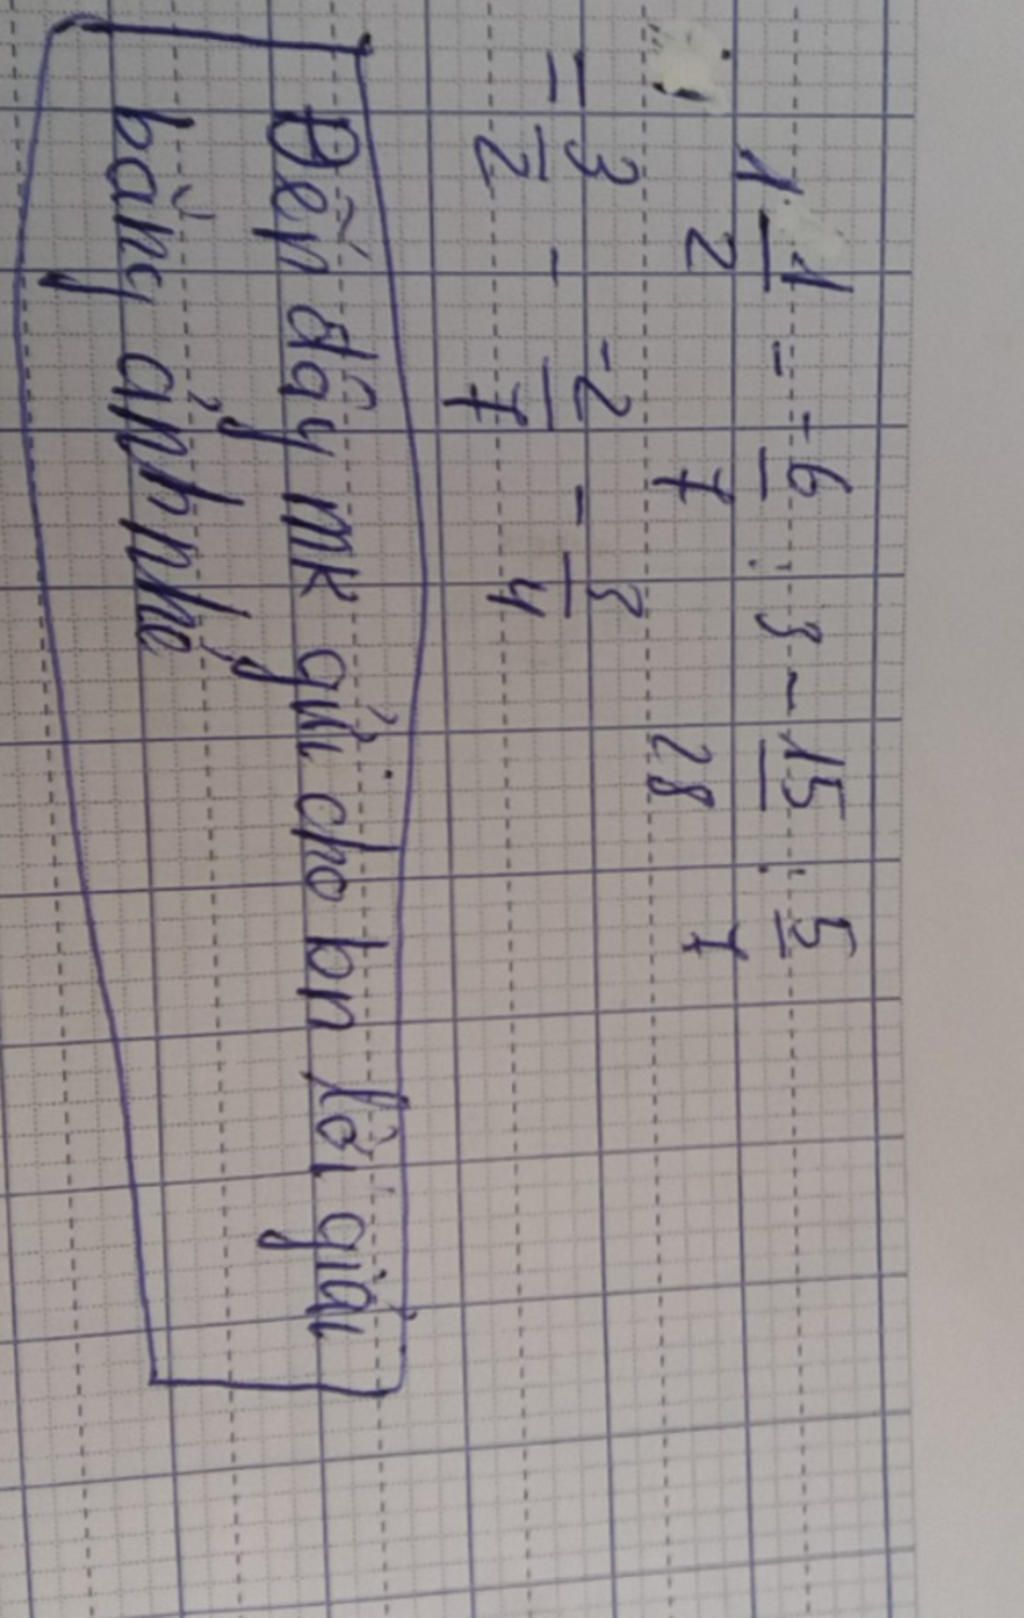 1 1/2 - -6/7 : 3 - 15/28 : 5/7
= 3/2 - -2/7 - 3/4
Đến đây mk gửi cho bn lời giải
bằng ảnh nhé